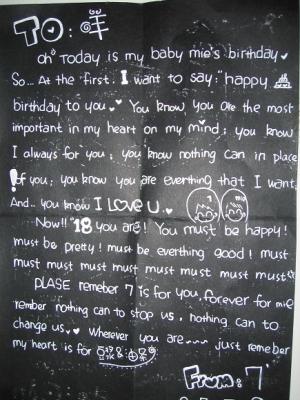 TO: 咩
oh Today is my baby mie's birthday
So... At the first. I want to say: "happy
birthday to you. You know you are the most
important in my heart on my mind; you know
I always for you; you know nothing can in place
of you; you know you are everthing that I want!
And.. you know I LOVE U..
Now!! "18 you are! You must be happy!
must be pretty! must be everthing good! must
must must must must must must must must
PLASE remeber 7 is for you, forever for mie
remeber nothing can to stop us, nothing can to
change us. Wherever you are~~~ just remeber
my heart is for
From: 7